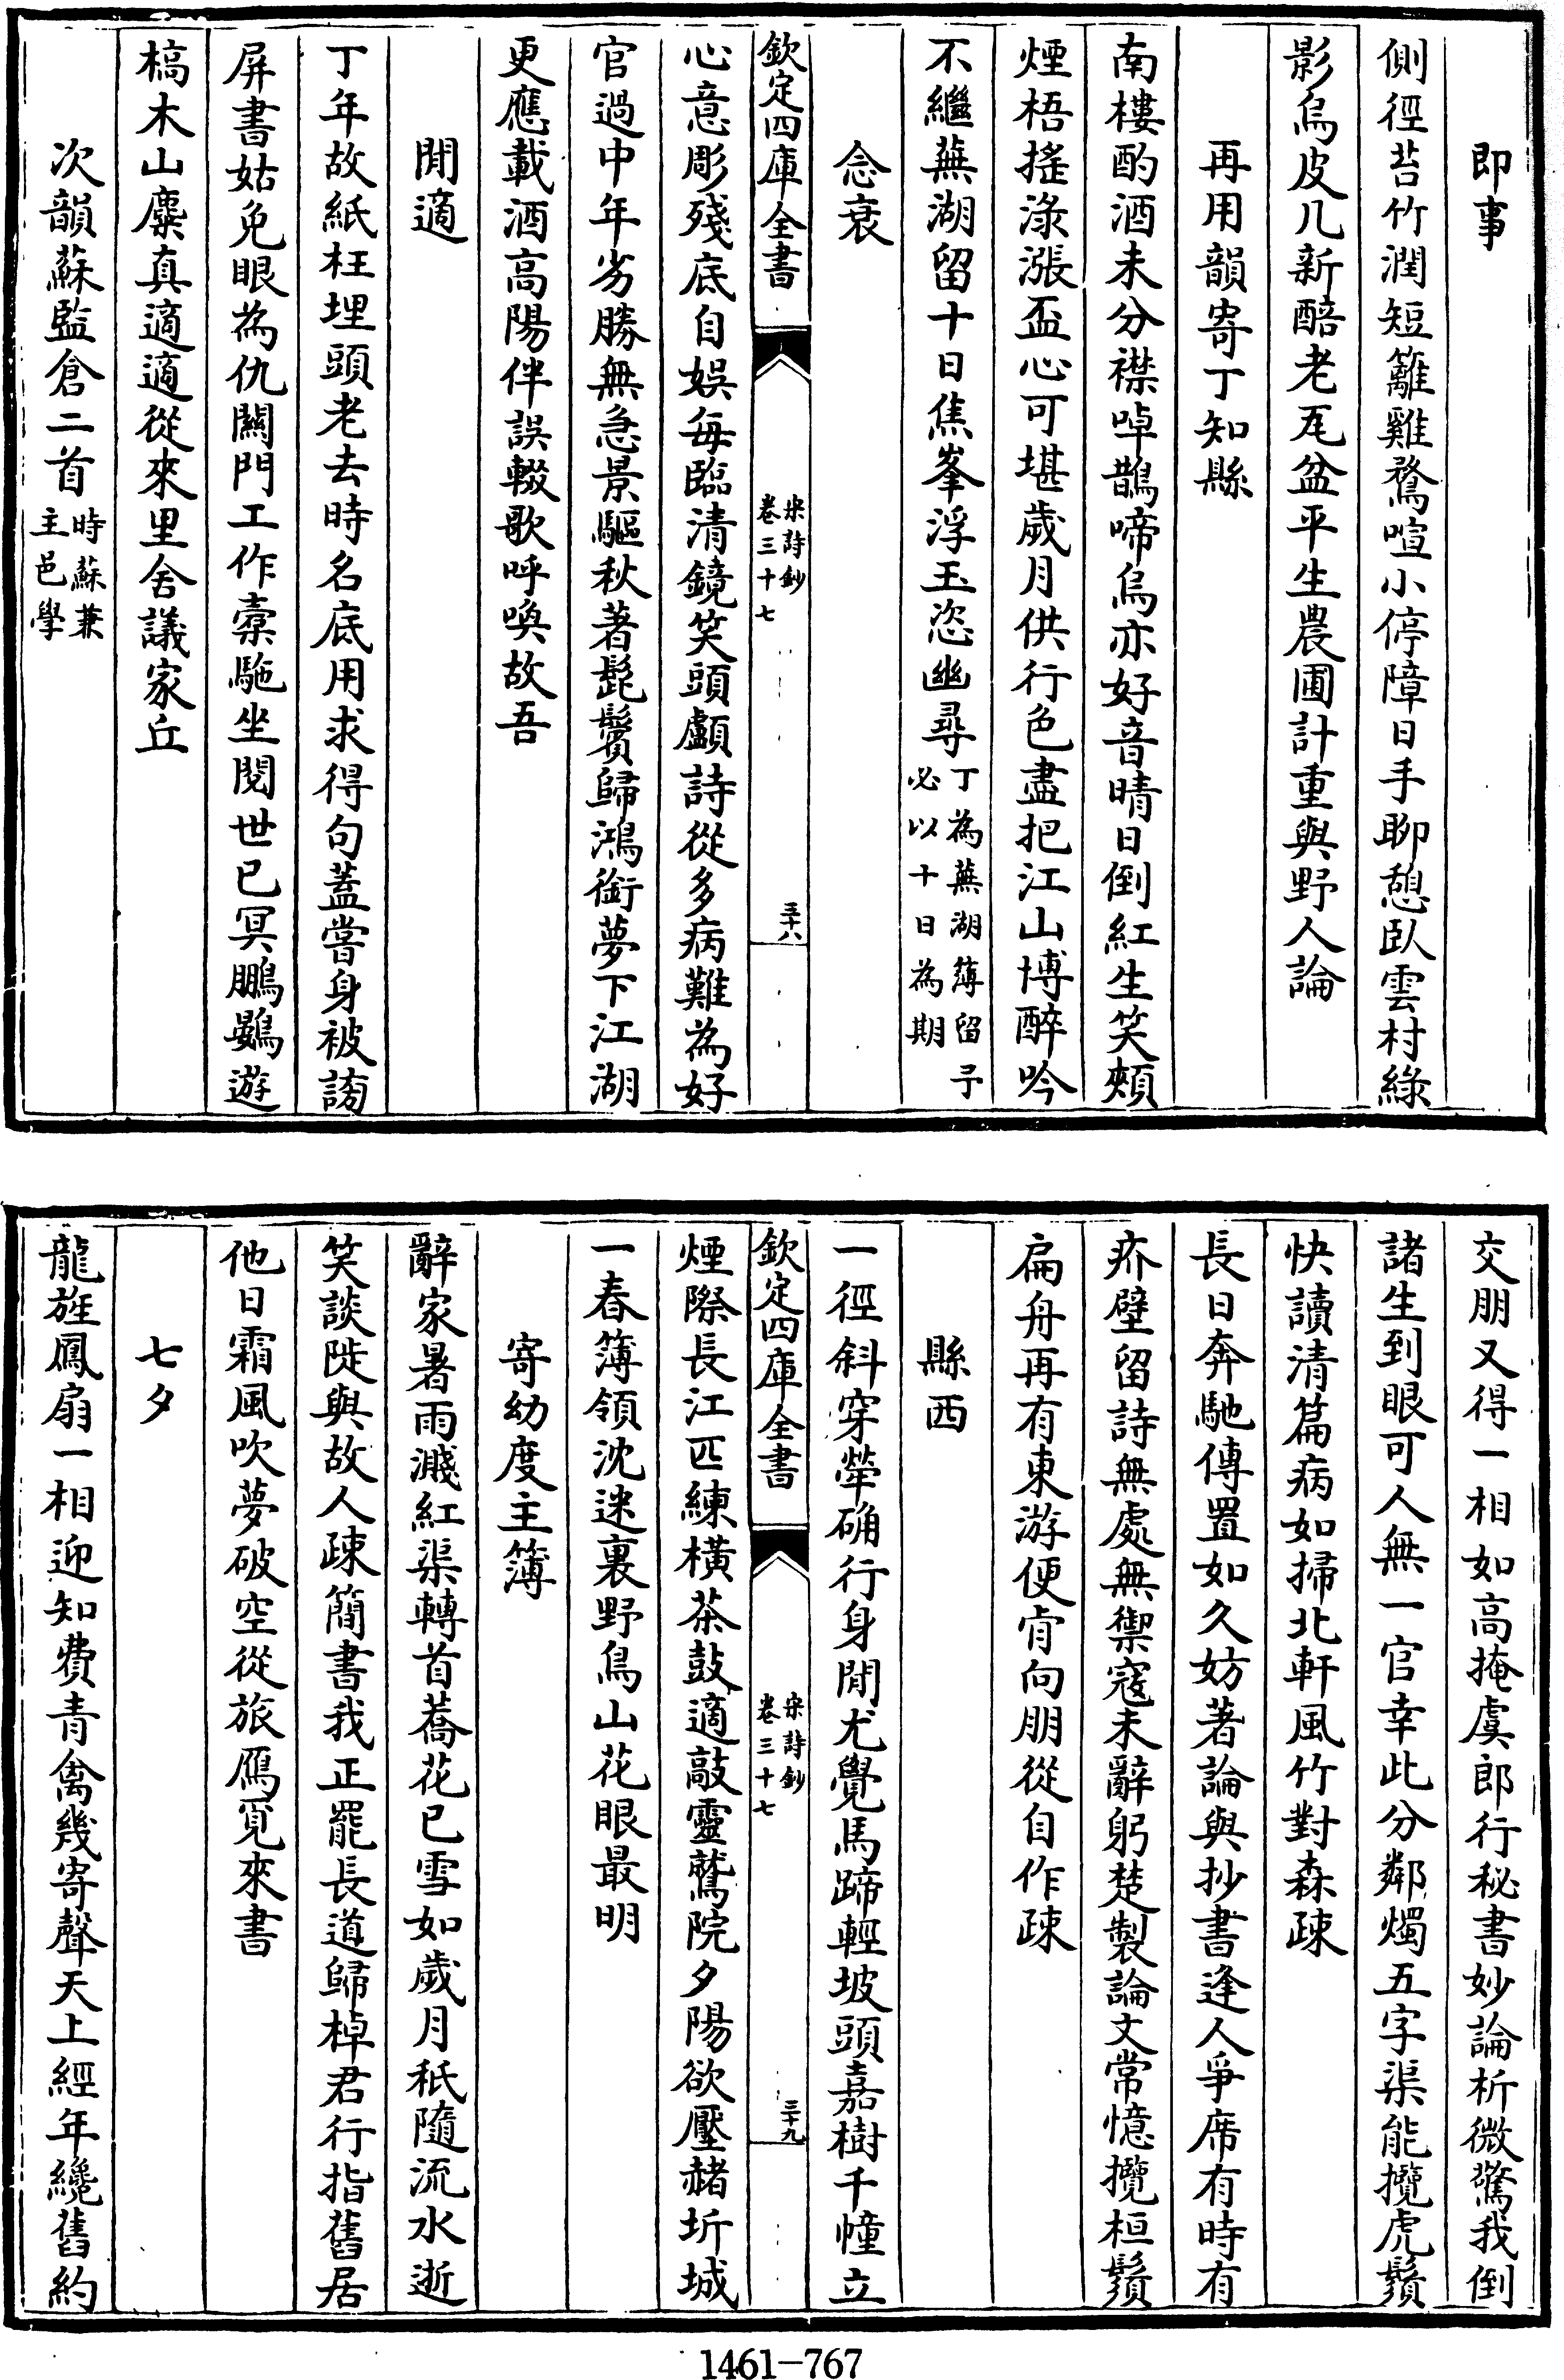 即事
側徑苔竹潤短籬雞鶩喧小停障日手聊憩臥雲村綠
影烏皮几新醅老瓦盆平生農圃計重與野人論
再用韻寄丁知縣
南樓酌酒未分襟啅鵲啼烏亦好音晴日倒紅生笑頰
煙梧搖淥漲盃心可堪歲月供行色盡把江山博醉吟
不繼蕪湖留十日焦峯浮玉恣幽尋丁為蕪湖簿留予
必以十日為期
念衰
欽定四庫全書
宋詩鈔
卷三十七
三十八
心意彫殘底自娛每臨清鏡笑頭顱詩從多病難為好
官過中年劣勝無急景驅秋著髭鬢歸鴻銜夢下江湖
更應載酒高陽伴誤輟歌呼喚故吾
閒適
丁年故紙枉埋頭老去時名底用求得句蓋嘗身被謗
屏書姑免眼為仇闗門工作槖駞坐閱世已冥鵬鷃遊
槁木山麋真適適從來里舍議家丘
次韻蘇監倉二首時蘇兼
主邑學
交朋又得一相如高掩虞郎行秘書妙論析微驚我倒
諸生到眼可人無一官幸此分鄰燭五字渠能攬虎鬚
快讀清篇病如掃北軒風竹對森疎
長日奔馳傳置如久妨著論與抄書逢人爭席有時有
疥壁留詩無處無禦寇未辭躬楚製論文常憶攬桓鬚
扁舟再有東游便肯向朋從自作疎
縣西
一徑斜穿犖确行身閒尤覺馬蹄輕坡頭嘉樹千幢立
欽定四庫全書
宋詩鈔
卷三十七
三十九
煙際長江匹練橫茶鼓適敲靈鷲院夕陽欲壓赭圻城
一春簿領沈迷裏野鳥山花眼最明
寄幼度主簿
辭家暑雨濺紅渠轉首蕎花已雪如歲月秪隨流水逝
笑談陡與故人疎簡書我正罷長道歸棹君行指舊居
他日霜風吹夢破空從旅鴈覓來書
七夕
龍旌鳳扇一相迎知費青禽幾寄聲天上經年纔舊約
1461-767